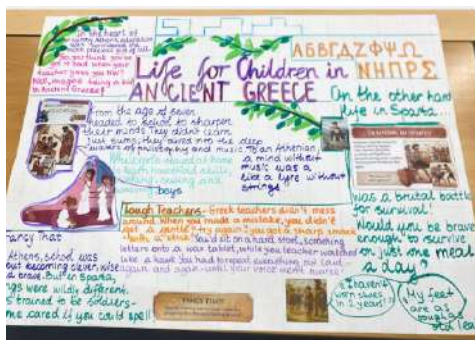 In the heart of
sunny Athens, education
was considered the
most precious gift of all.
So you think you've
got it hard when your
teacher gives you HW?
Well, imagine being a kid
in Ancient Greece!
Life for Children in
ANCIENT GREECE
ΑΒΒΓΔΖΦΨΩ
ΝΗΠΡΣ
From the age of seven
headed to school to sharpen
their minds. They didn't learn
just sums; they dived into the deep
waters of philosophy and music.
While girls stayed at home
to learn household skills,
sewing and
boys
To an Athenian,
a mind without
music was a
like a lyre without
strings.
On the other hand
life in Sparta...
was a brutal battle
for survival!
Would you be brave
enough to survive
on just one meal
a day?
Tough Teachers - Greek teachers didn't mess
around. When you made a mistake, you didn't
get a gentle "try again": you got a sharp smack
with a stick. You'd sit on a hard stool, scratching
letters onto a wax tablet, while you teacher watched
like a hawk. You had to repeat everything out loud
again and again until your voice went hoarse!
Fancy That
Athens, school was
about becoming clever, wise
and brave. But in Sparta,
things were wildly different.
trained to be soldiers-
cared if you could spell
FANCY THAT!
I haven't
worn shoes
in 2 years!
My feet
are as
tough as
old lea